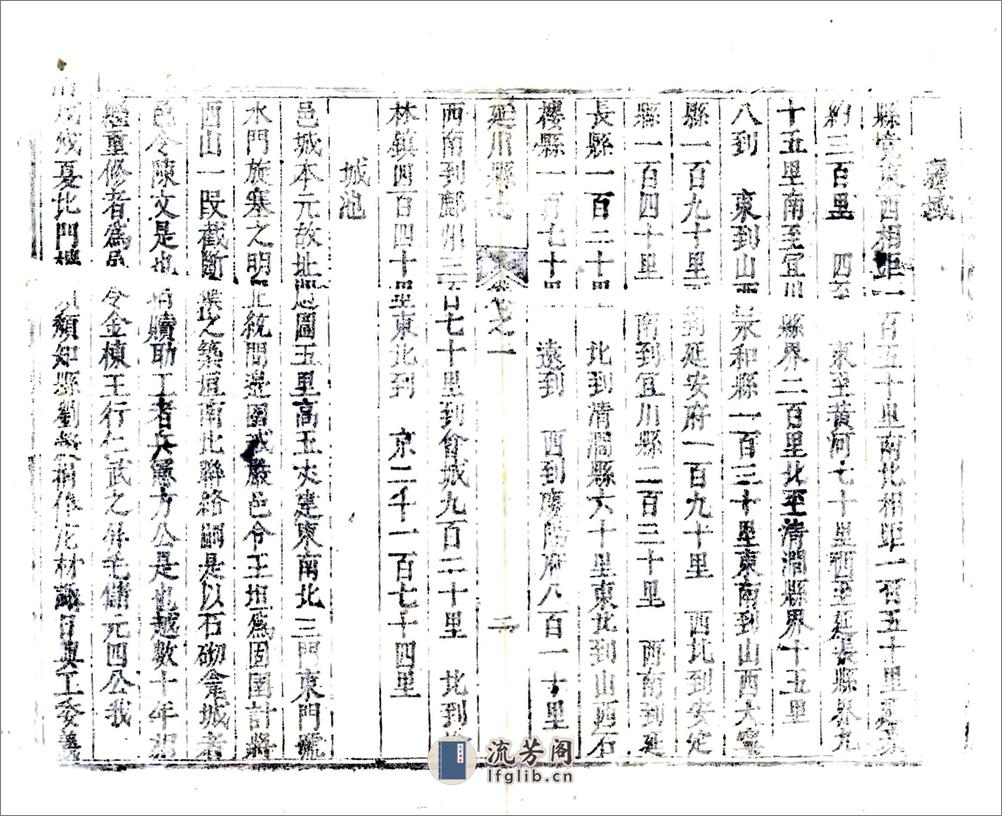 疆域
縣 東西相距一百五十里南北相距一百五十里
約三百里 四至 東至黃河七十里西至延長縣界九
十五里南至宜川縣界二百里北至清澗縣界十五里
八到 東到山西永和縣一百三十里東南到山西大寧
縣一百九十里 到延安府一百九十里 西北到安定
縣一百四十里 南到宜川縣二百三十里 西南到延
長縣一百二十里 北到清澗縣六十里東北到山西石
樓縣一百七十里 遠到 西到慶陽府八百一十里
延川縣志 卷之一 二
西南到鄜州三百七十里到會城九百二十里 北到榆
林鎮四百四十里東北到 京二千一百七十四里
城池
邑城本元故址週圍五里高五丈建東南北三門東門號
水門旋塞之明正統間邊圉戒嚴邑令王坦爲固圉計將
西山一段截斷 之築垣南北聯絡嗣是以石砌龕城者
邑令陳文是也 贖助工者兵憲方公是也越數十年
繼重修者爲邑令金棟王行仁武之 毛儲元四公我
戍戍夏北門樓 頽知縣劉 捐俸庀材 日興工委義
流芳阁
lfglib.cn